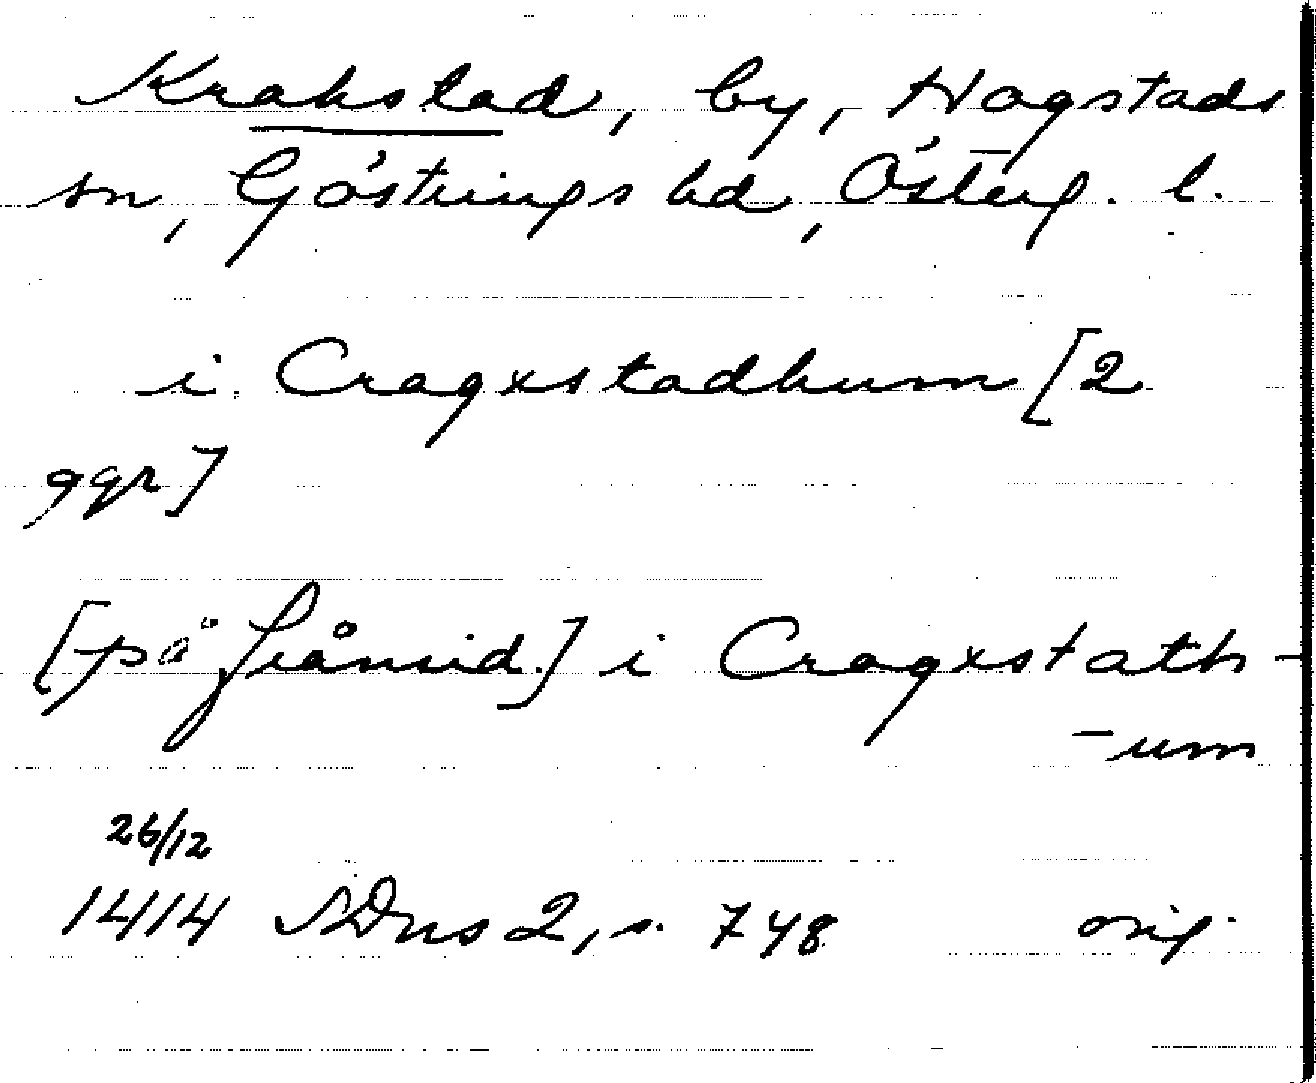 Krakstad, by, Hogstads
sn, Göstrings hd, Österg. l.
i Cragxstadhum [2
ggr]
[på frånsid.] i Cragxstath-
-um
26/12
1414 SDns 2, s. 748 orig.